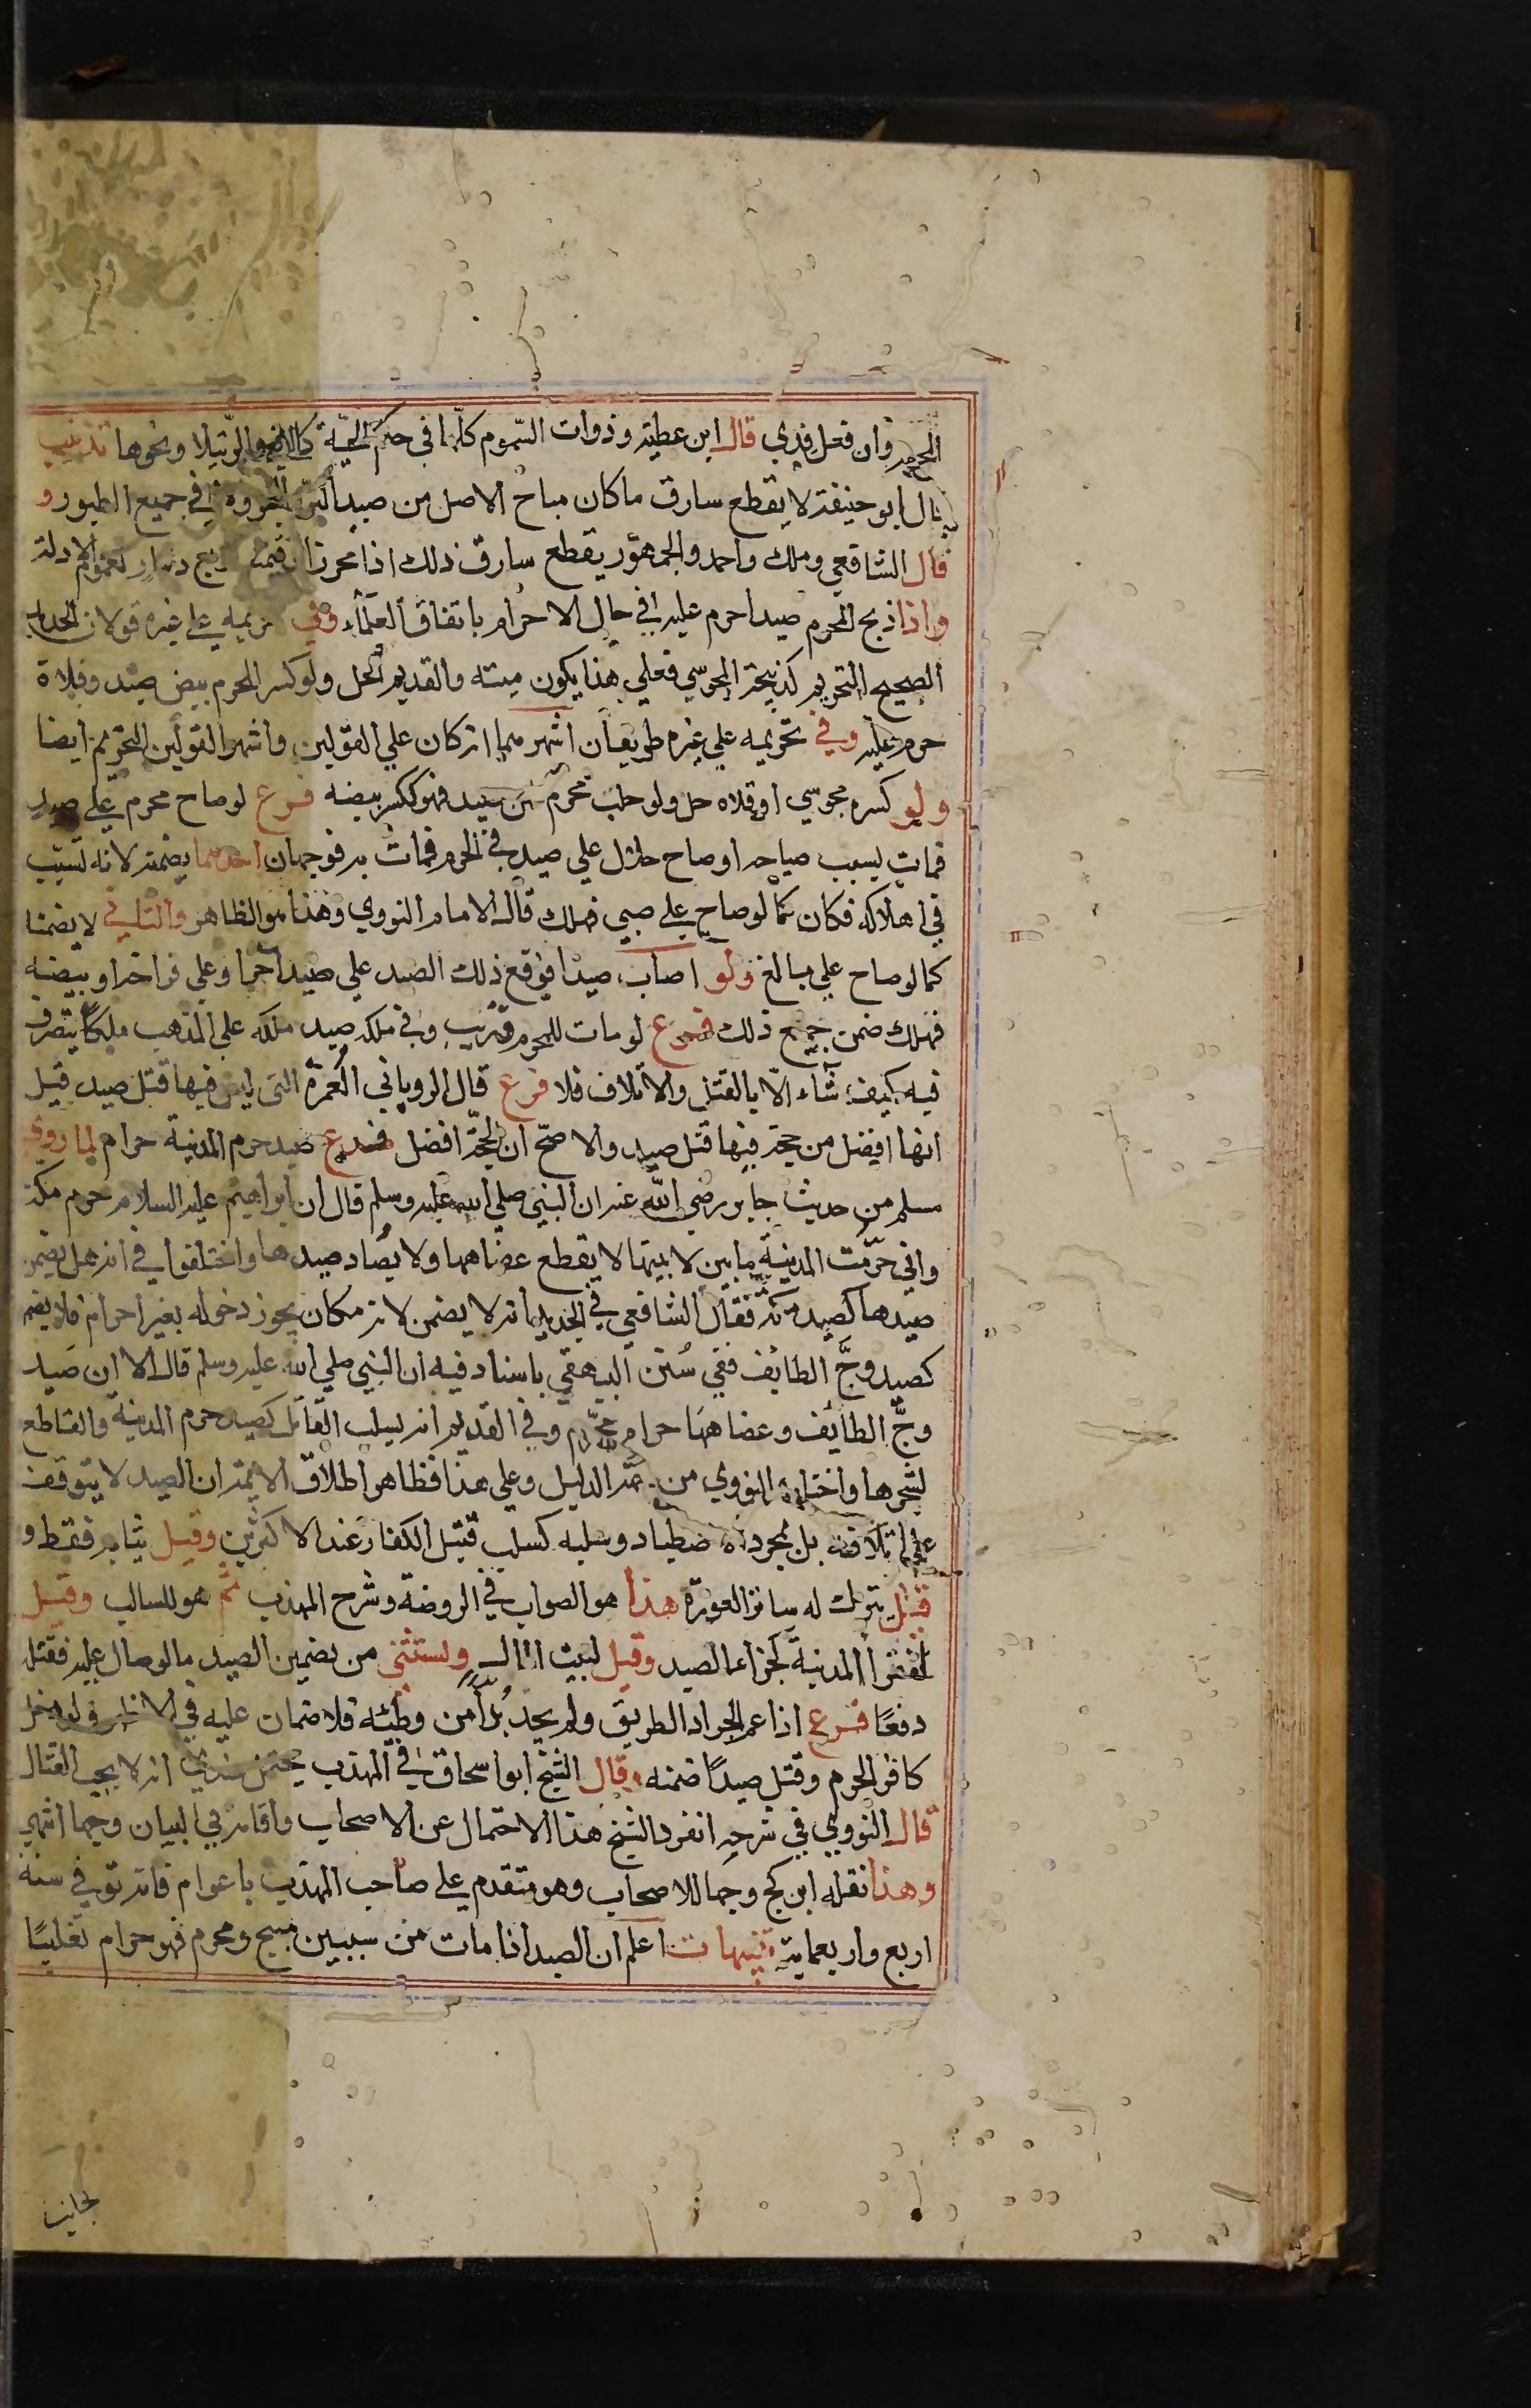 المحرم وان فعل فدي قال ابن عطية وذوات السموم كلها في حكم الحية كالافعي والرتيلا ونحوها تذنيب
قال ابو حنيفة لا يقطع سارق ما كان مباح الاصل من صيد البر والبحر وفي جميع الطيور و
قال الشافعي وملك واحمد والجمهور يقطع سارق ذلك اذا محرزا قيمته ربع دينار لعموم الادلة
واذا ذبح المحرم صيدا حرم عليه في حال الاحرام باتفاق العلماء وفي تحريمه على غيره قولان الجديد
الصحيح التحريم كذبيحة المجوسي فعلي هذا يكون ميتة والقديم الحل ولو كسر المحرم بيض صيد وقلاه
حرم عليه وفي تحريمه علي غيره طريقان اشهرهما انه كان علي القولين واشهر القولين التحريم ايضا
ولو كسره مجوسي او قلاه حل ولو حلب محرم لبن صيد فهو ككسر بيضه فرع لو صاح محرم على صيد
فمات بسبب صياحه او صاح حلال علي صيد في الحرم فمات به فوجهان احدهما يضمنه لانه تسبب
في اهلاكه فكان كما لو صاح علي صبي فهلك قال الامام النووي وهذا هو الظاهر والثاني لا يضمنا
كما لو صاح علي بالغ ولو اصاب صيدا فوقع ذلك الصيد علي صيد آخر او علي فراخه او بيضه
فهلك ضمن جميع ذلك فرع لو مات للمحرم قريب وفي ملكه صيد ملكه علي المذهب ملكا يتصرف
فيه كيف شاء الا بالقتل والاتلاف فلا فرع قال الروياني العمرة التي ليس فيها قتل صيد قيل
انها افضل من حجة فيها قتل صيد والاصح ان الحجة افضل فرع صيد حرم المدينة حرام لما روي
مسلم من حديث جابر رضي الله عنه ان النبي صلي الله عليه وسلم قال ان ابراهيم عليه السلام حرم مكة
واني حرمت المدينة ما بين لابتيها لا يقطع عضاهها ولا يصاد صيدها واختلفوا في انه هل يضمن
صيدها كصيد مكة فقال الشافعي في الجديد انه لا يضمن لانه مكان يجوز دخوله بغير احرام فلا يضمن
كصيد وج الطايف ففي سنن البيهقي باسناد فيه ان النبي صلي الله عليه وسلم قال الا ان صيد
وج الطايف وعضاهها حرام محرم وفي القديم انه يسلب القاتل كصيد حرم المدينة والقاطع
لشجرها واختاره النووي من جهة الدليل وعلي هذا فظاهر اطلاق الائمة ان الصيد لا يتوقف
علي اتلافه بل بمجرد الاصطياد وسلبه كسلب قتيل الكفار عند الاكثرين وقيل ثيابه فقط و
قيل يترك له ساتر العورة هذا هو الصواب في الروضة وشرح المهذب ثم هو للسالب وقيل
لفقرا المدينة كجزاء الصيد وقيل لبيت المال ويستثني من تضمين الصيد ما لو صال عليه فقتله
دفعا فرع اذا عم الجراد الطريق ولم يجد بدا من وطئه فلا ضمان عليه في الاظهر ولو دخل
كافر الحرم وقتل صيدا ضمنه وقال الشيخ ابو اسحاق في المهذب يحتمل عندي انه لا يجب القتال
قال النووي في شرحه انفرد الشيخ هذا الاحتمال عن الاصحاب واقامه في البيان وجها انتهي
وهذا نقله ابن كج وجها للاصحاب وهو متقدم علي صاحب المهذب باعوام فانه توفي سنة
اربع واربعماية تنبيهات اعلم ان الصيد اذا مات من سببين مبيح ومحرم فهو حرام تغليبا
لجانب